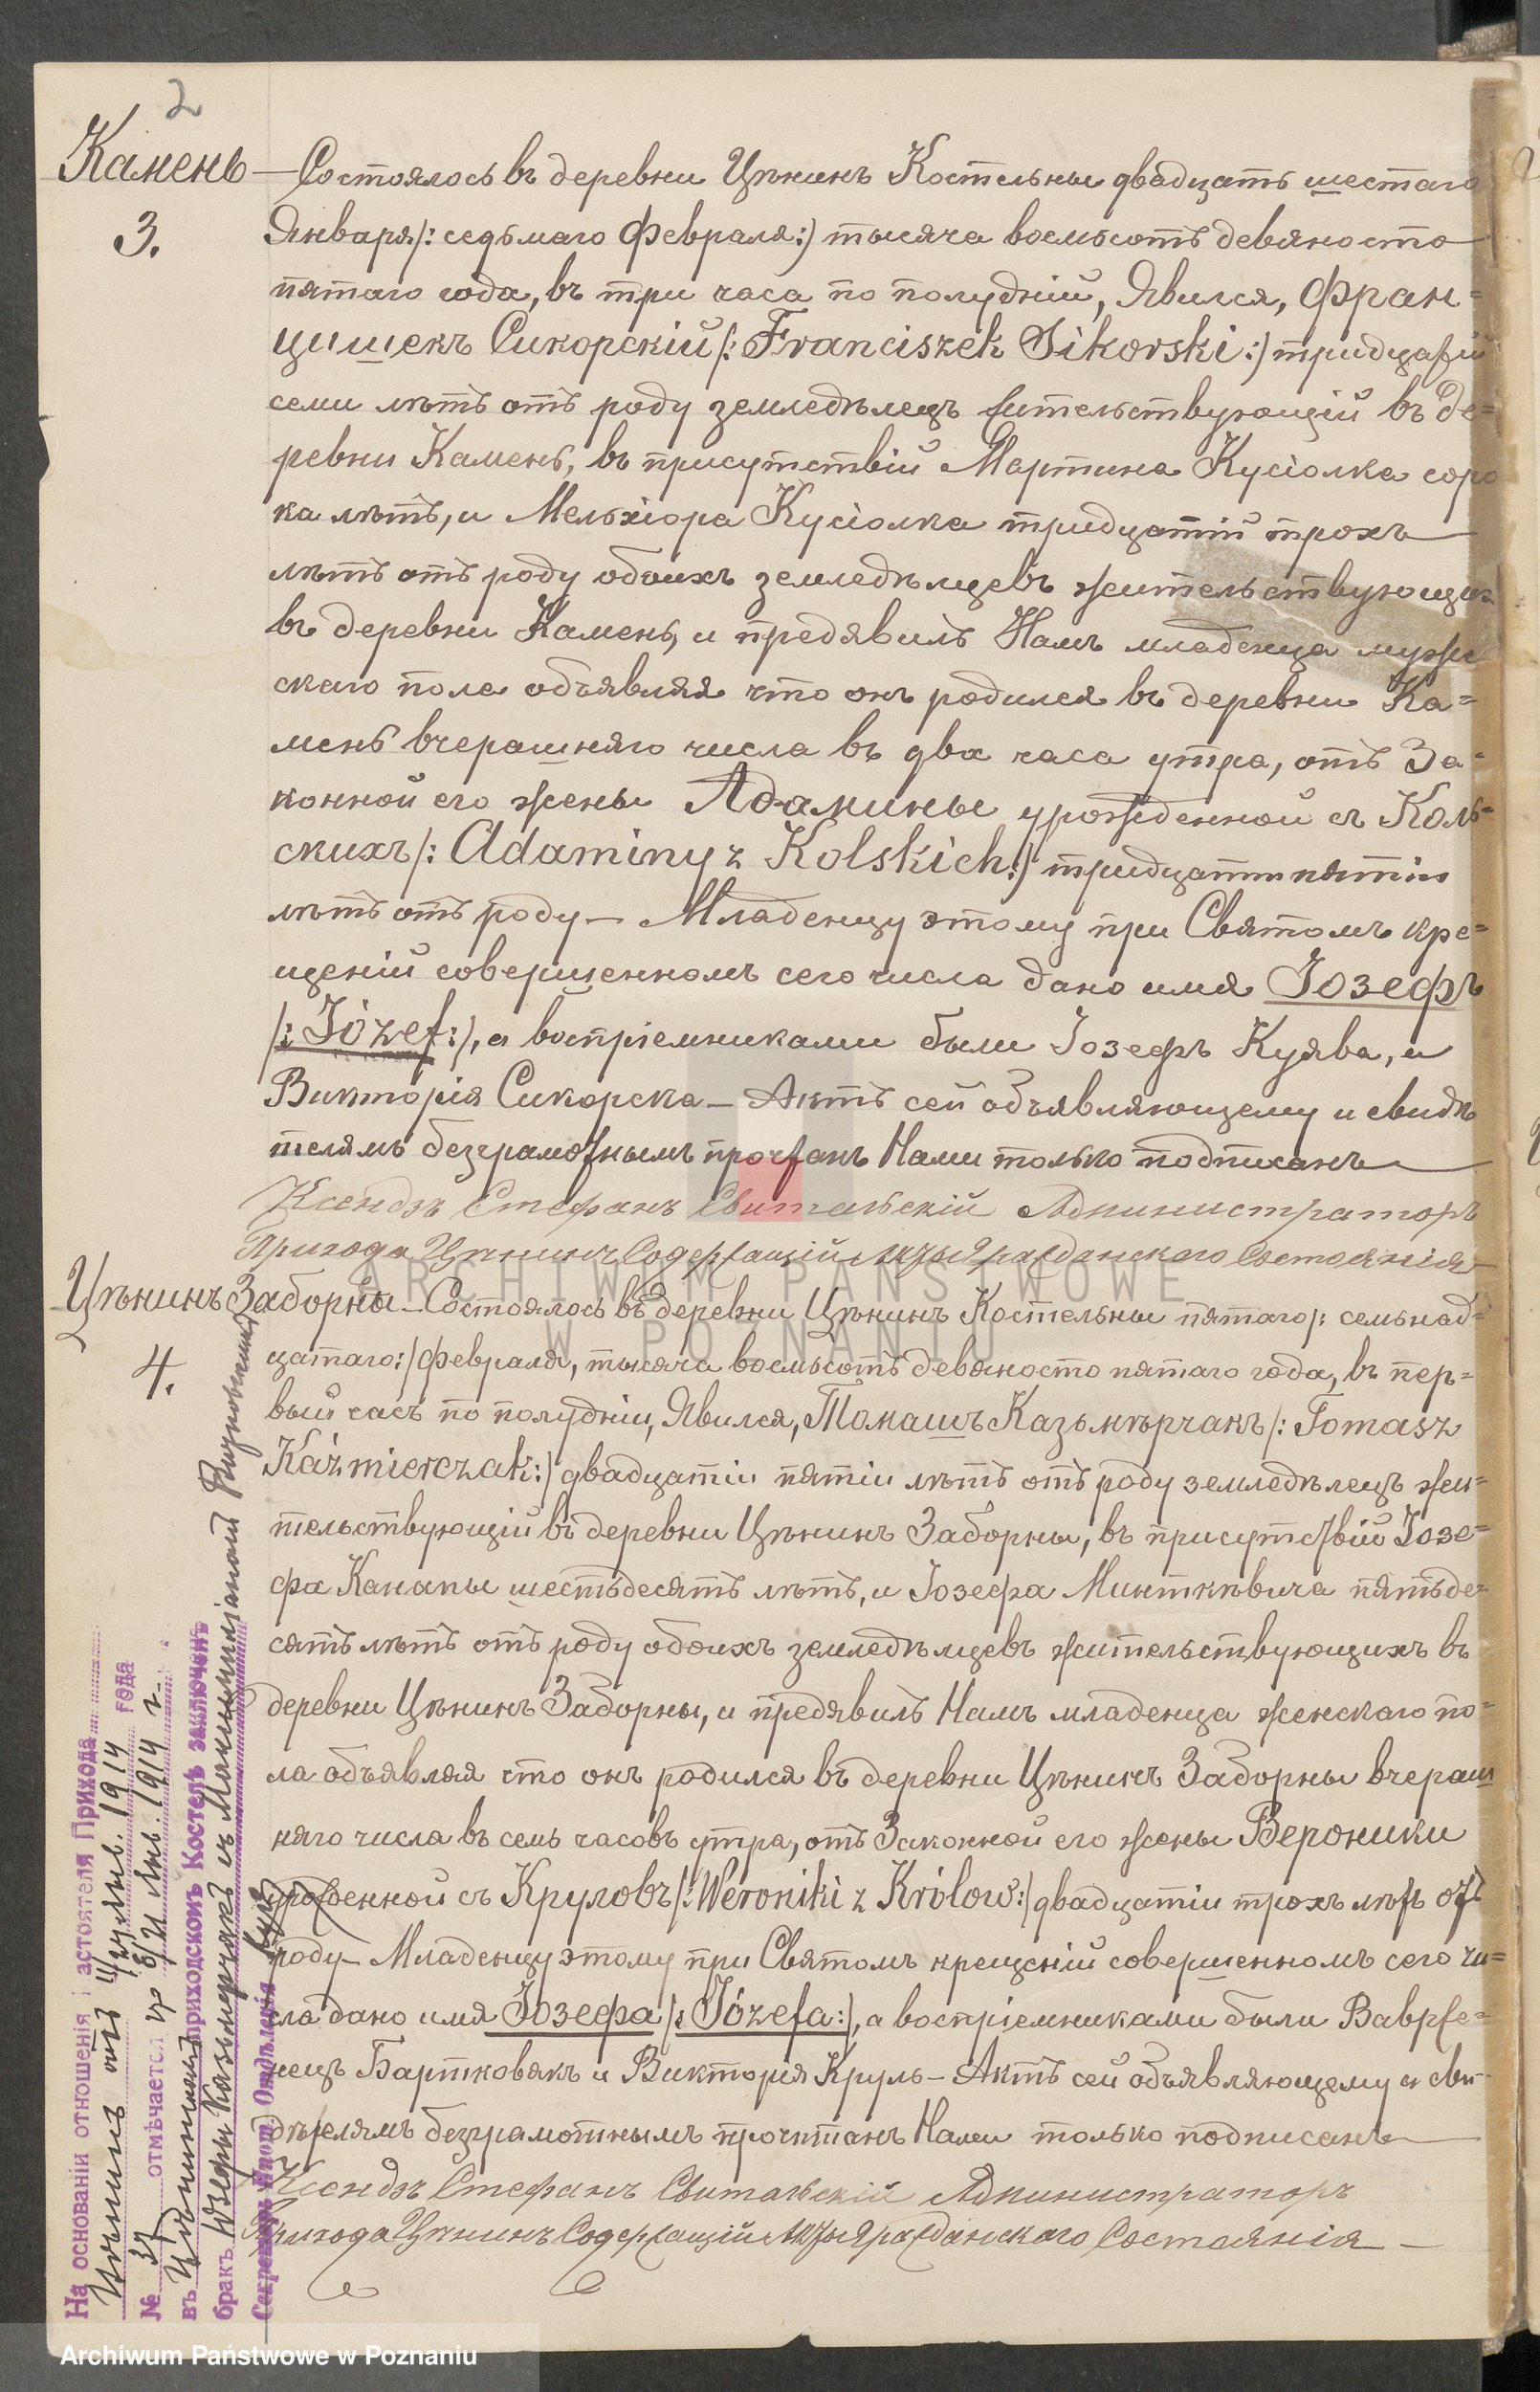 2
Камень
3.
— Состоялось въ деревни Цѣнинъ Костельны двадцать шестаго
Января /: седьмаго Февраля :/ тысяча восемьсотъ девяносто
пятаго года, въ три часа по полудній, Явился, Фран=
цишекъ Сикорскій /: Franciszek Sikorski :/ тридцатій
семи лѣтъ отъ роду земледѣлецъ жительствующій въ де=
ревни Камень, въ присутствій Мартина Кусіолка соро
ка лѣтъ, и Мельхіора Кусіолка тридцатій трохъ
лѣтъ отъ роду обоихъ земледѣлцевъ жительствующихъ
въ деревни Камень, и предявилъ Намъ младенца мужс
скаго пола объявляя что онъ родился въ деревни Ка=
мень вчерашняго числа въ два часа утра, отъ За=
конной его жены Адамины урожденной съ Коль=
скихъ /: Adaminy z Kolskich :/ тридцати пятіи
лѣтъ отъ роду — Младенцу этому при Святомъ кре=
щеній совершенномъ сего числа дано имя Іозефъ
/: Józef :/, а воспріемниками были Іозефъ Куява, и
Викторія Сикорска — Актъ сей объявляющему и свидѣ
телямъ безграмотнымъ прочтанъ Нами только подписанъ
Ксендзъ Стефанъ Свитальскій Администраторъ
Прихода Цѣнинъ Содержащій Акты Гражданскаго Состоянія
Цѣнинъ Заборны
4.
— Состоялось въ деревни Цѣнинъ Костельны пятаго /: семьнад=
цатаго :/ Февраля, тысяча восемьсотъ девяносто пятаго года, въ пер=
вый часъ по полудніи, Явился, Томашъ Казьмѣрчакъ /: Tomasz
Kaźmierczak :/ двадцатіи пятіи лѣтъ отъ роду земледѣлецъ жи=
тельствующій въ деревни Цѣнинъ Заборны, въ присутствій Іозе=
фа Канапы шестьдесятъ лѣтъ, и Іозефа Минткѣвича пятьде=
сятъ лѣтъ отъ роду обоихъ земледѣлцевъ жительствующихъ въ
деревни Цѣнинъ Заборны, и предявилъ Намъ младенца женскаго по=
ла объявляя что онъ родился въ деревни Цѣнинъ Заборны вчераш
няго числа въ семь часовъ утра, отъ Законной его жены Вероники
урожденной съ Круловъ /: Weroniki z Królow :/ двадцатіи трохъ лѣтъ отъ
роду — Младенцу этому при Святомъ крещеній совершенномъ сего чи=
сла дано имя Іозефа /: Józefa :/, а воспріемниками были Ваврже=
нецъ Бартковякъ и Викторія Круль — Актъ сей объявляющему и сви=
дѣтелямъ безграмотнымъ прочитанъ Нами только подписанъ
Ксендзъ Стефанъ Свитальскій Администраторъ
Прихода Цѣнинъ Содержащій Акты Гражданскаго Состоянія —
На основаніи отношенія настоятеля Прихода
Цѣнинъ отъ 1914 года
№ 34 отмѣчается 8/21 Янв. 1914 г.
въ приходскомъ Костелѣ заключенъ
бракъ Іозефы Казьмерчакъ съ Максимиліаномъ
Секретарь Ипот. Отдѣленія
ARCHIWUM PAŃSTWOWE
W POZNANIU
Archiwum Państwowe w Poznaniu